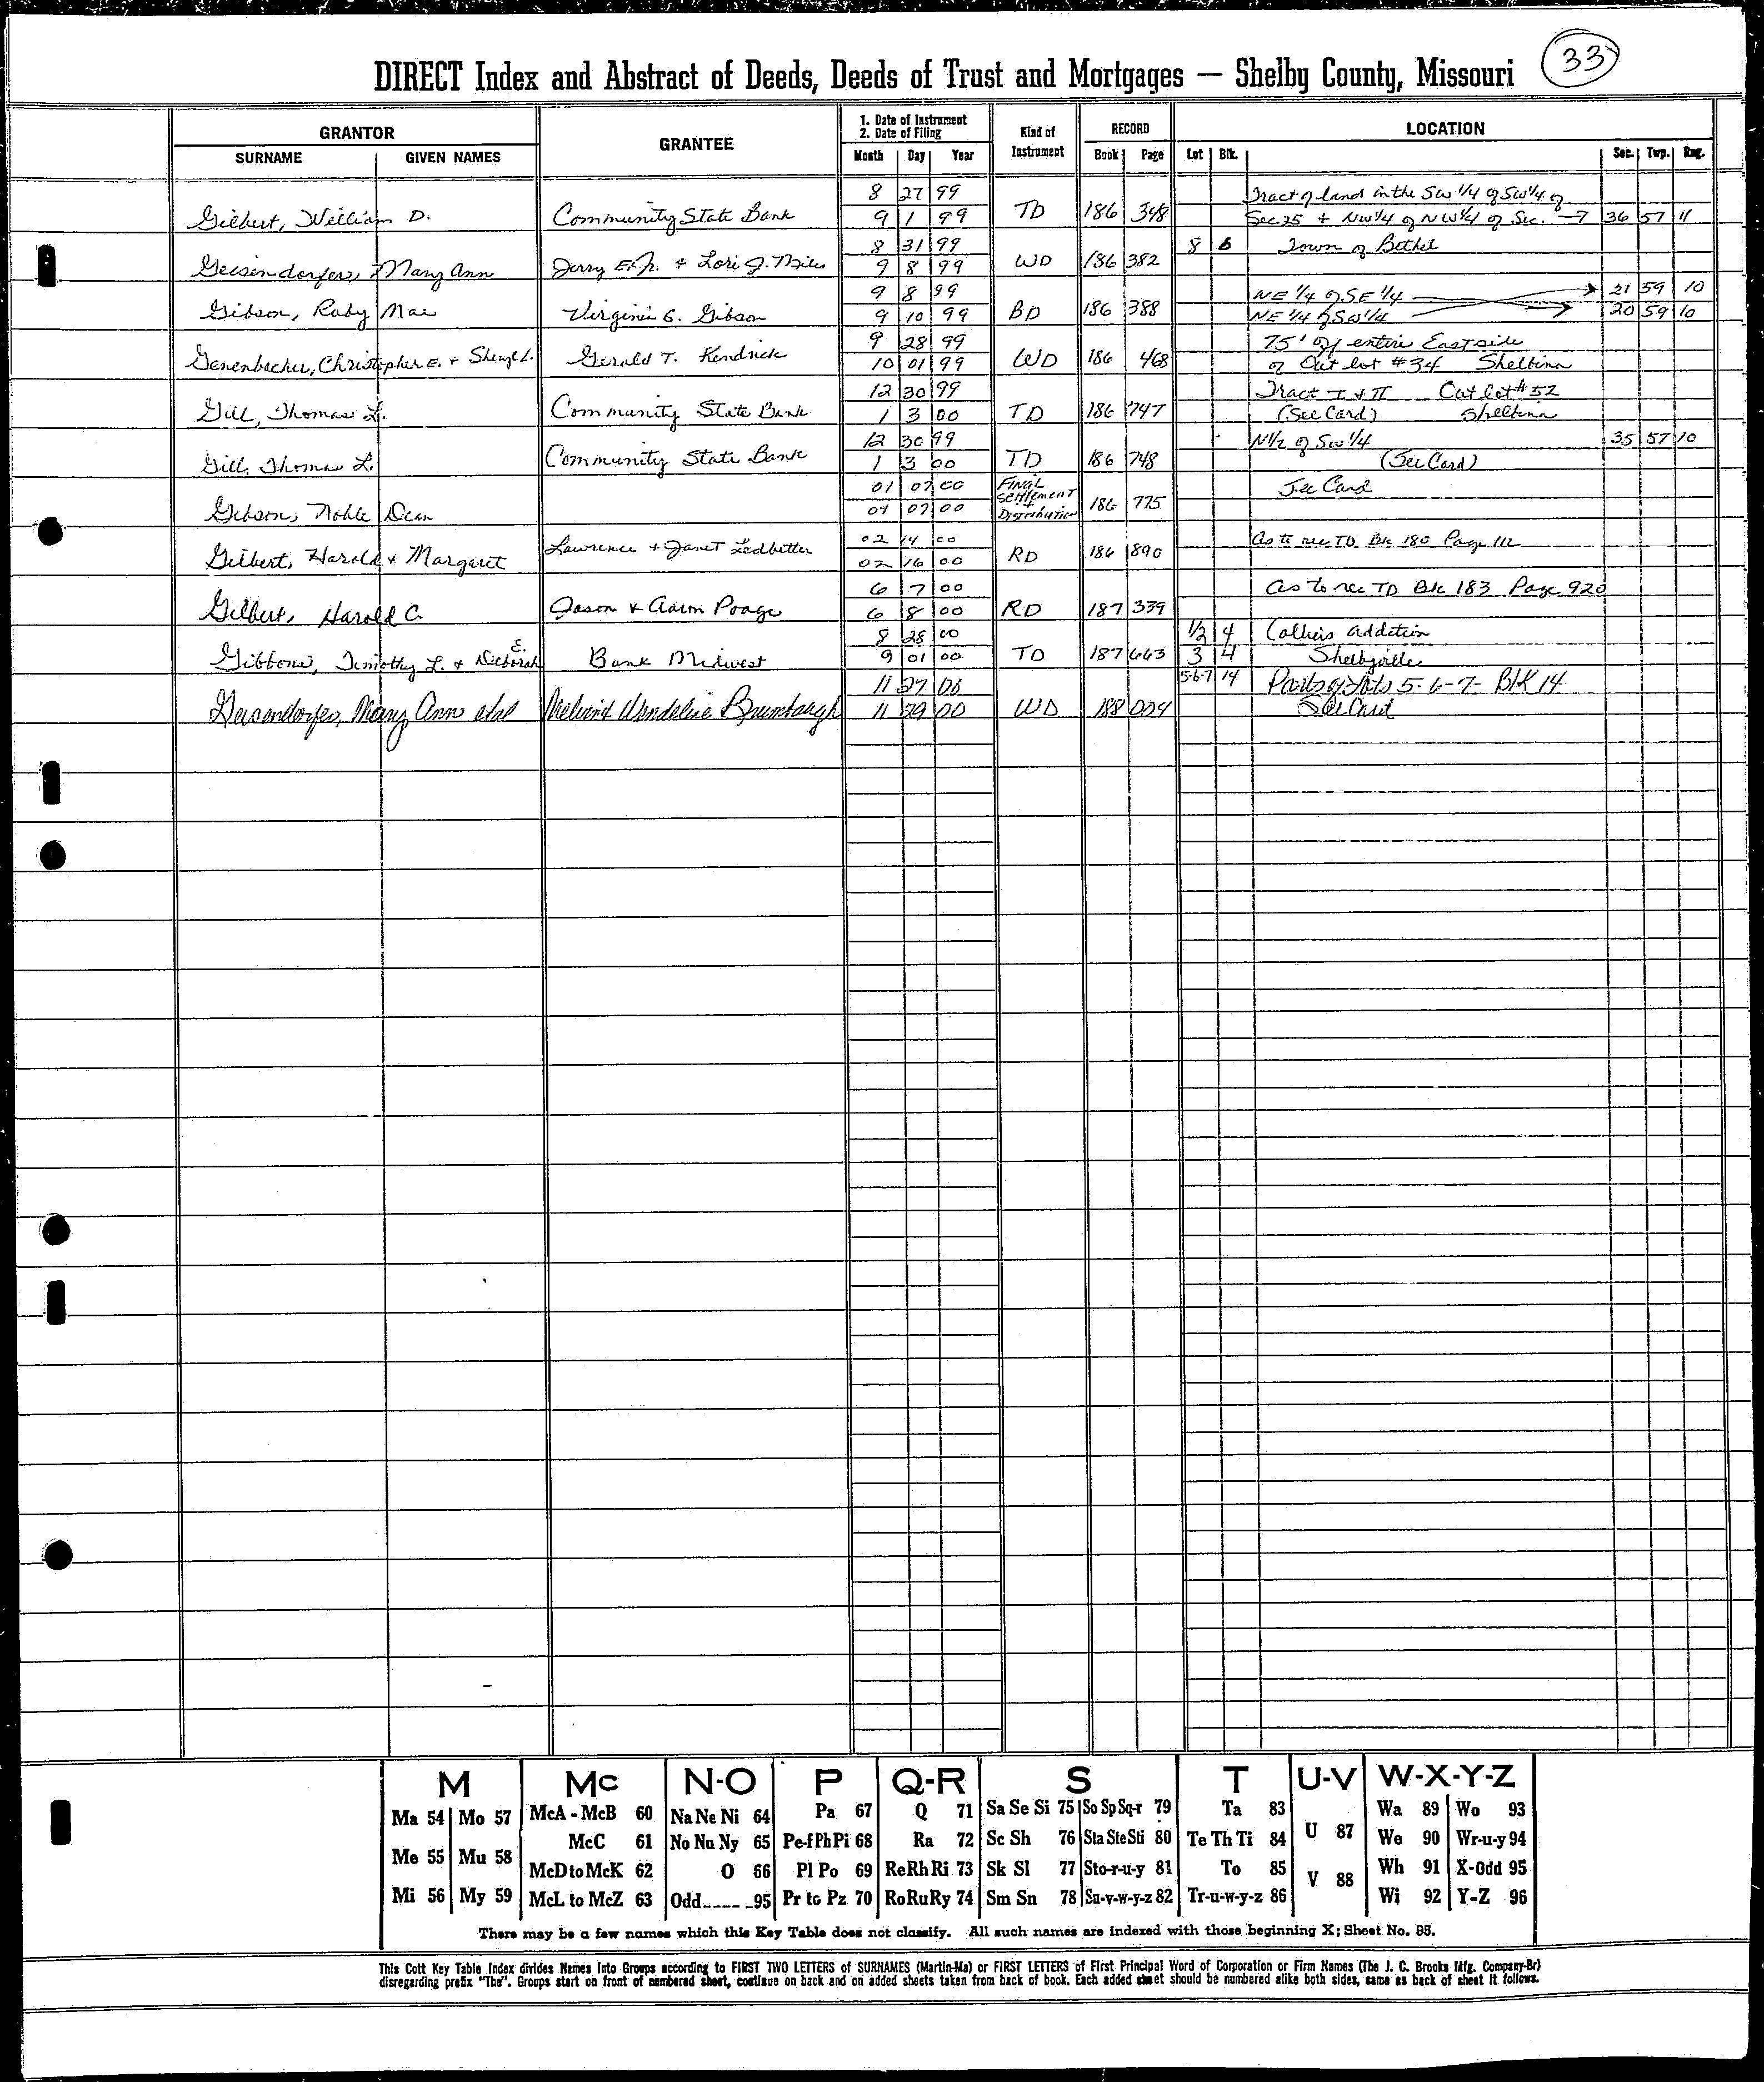 33
DIRECT Index and Abstract of Deeds, Deeds of Trust and Mortgages — Shelby County, Missouri
GRANTOR GRANTEE 1. Date of Instrument 2. Date of Filing Kind of Instrument RECORD LOCATION
SURNAME GIVEN NAMES Month Day Year Book Page Lot Blk. Sec. Twp. Rng.
8 27 99 Tract of land in the SW 1/4 of SW 1/4 of
Gilbert, William D. Community State Bank 9 1 99 TD 186 348 Sec 25 + NW 1/4 of NW 1/4 of Sec. → 36 57 11
8 31 99 8 6 Town of Bethel
Geisendorfer, Mary Ann Jerry E. Jr. + Lori J. Miles 9 8 99 WD 186 382
9 8 99 NE 1/4 of SE 1/4 → 21 59 10
Gibson, Ruby Mae Virginia G. Gibson 9 10 99 BD 186 388 NE 1/4 of SW 1/4 → 20 59 10
9 28 99 75' off entire East side
Genenbacher, Christopher E. + Sheryl L. Gerald T. Kendrick 10 01 99 WD 186 468 of Out lot #34 Shelbina
12 30 99 Tract I + II Out lot #52
Gill, Thomas L. Community State Bank 1 3 00 TD 186 747 (See Card) Shelbina
12 30 99 N 1/2 of SW 1/4 35 57 10
Gill, Thomas L. Community State Bank 1 3 00 TD 186 748 (See Card)
01 07 00 Final Settlement + Distribution See Card
Gibson, Noble Dean 01 07 00 186 775
02 14 00 As to rec TD Bk 180 Page 112
Gilbert, Harold + Margaret Lawrence + Janet Ledbetter 02 16 00 RD 186 890
6 7 00 As to rec TD Bk 183 Page 920
Gilbert, Harold C. Jason + Aaron Poage 6 8 00 RD 187 339
8 28 00 1/2 4 Colliers Addition
Gibbons, Timothy L. + Deborah E. Bank Midwest 9 01 00 TD 187 663 3 4 Shelbyville
11 27 00 5-6-7 14 Parts of Lots 5-6-7- Blk 14
Geisendorfer, Mary Ann etal Brumbaugh 11 29 00 WD 188 004 See Card
M Mc N-O P Q-R S T U-V W-X-Y-Z
Ma 54 Mo 57 McA - McB 60 Na Ne Ni 64 Pa 67 Q 71 Sa Se Si 75 So Sp Sq-r 79 Ta 83 Wa 89 Wo 93
McC 61 No Nu Ny 65 Pe-f Ph Pi 68 Ra 72 Sc Sh 76 Sta Ste Sti 80 Te Th Ti 84 U 87 We 90 Wr-u-y 94
Me 55 Mu 58 McD to McK 62 O 66 Pl Po 69 Re Rh Ri 73 Sk Sl 77 Sto-r-u-y 81 To 85 V 88 Wh 91 X-Odd 95
Mi 56 My 59 McL to McZ 63 Odd_____95 Pr to Pz 70 Ro Ru Ry 74 Sm Sn 78 Su-v-w-y-z 82 Tr-u-w-y-z 86 Wi 92 Y-Z 96
There may be a few names which this Key Table does not classify. All such names are indexed with those beginning X; Sheet No. 95.
This Cott Key Table Index divides Names Into Groups according to FIRST TWO LETTERS of SURNAMES (Martin-Ma) or FIRST LETTERS of First Principal Word of Corporation or Firm Names (The J. C. Brooks Mfg. Company-Br)
disregarding prefix "The". Groups start on front of numbered sheet, continue on back and on added sheets taken from back of book. Each added sheet should be numbered alike both sides, same as back of sheet it follows.